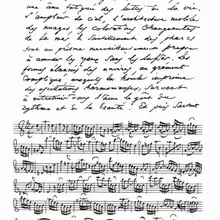 une ame fatiguée des luttes de la vie.
L'ampleur de ciel, l'architecture mobile
des nuages, les colorations changeantes
de la mer, le scintillement des phares
sont un prisme merveilleusement propre
à amuser les yeux sans les lasser. Les
formes élancées des navires, au gréement
compliqué, auxquels la houle imprime
des oscillations harmonieuses, servent
à entretenir dans l'âme le goût du
rythme et de la beauté. Et puis, surtout